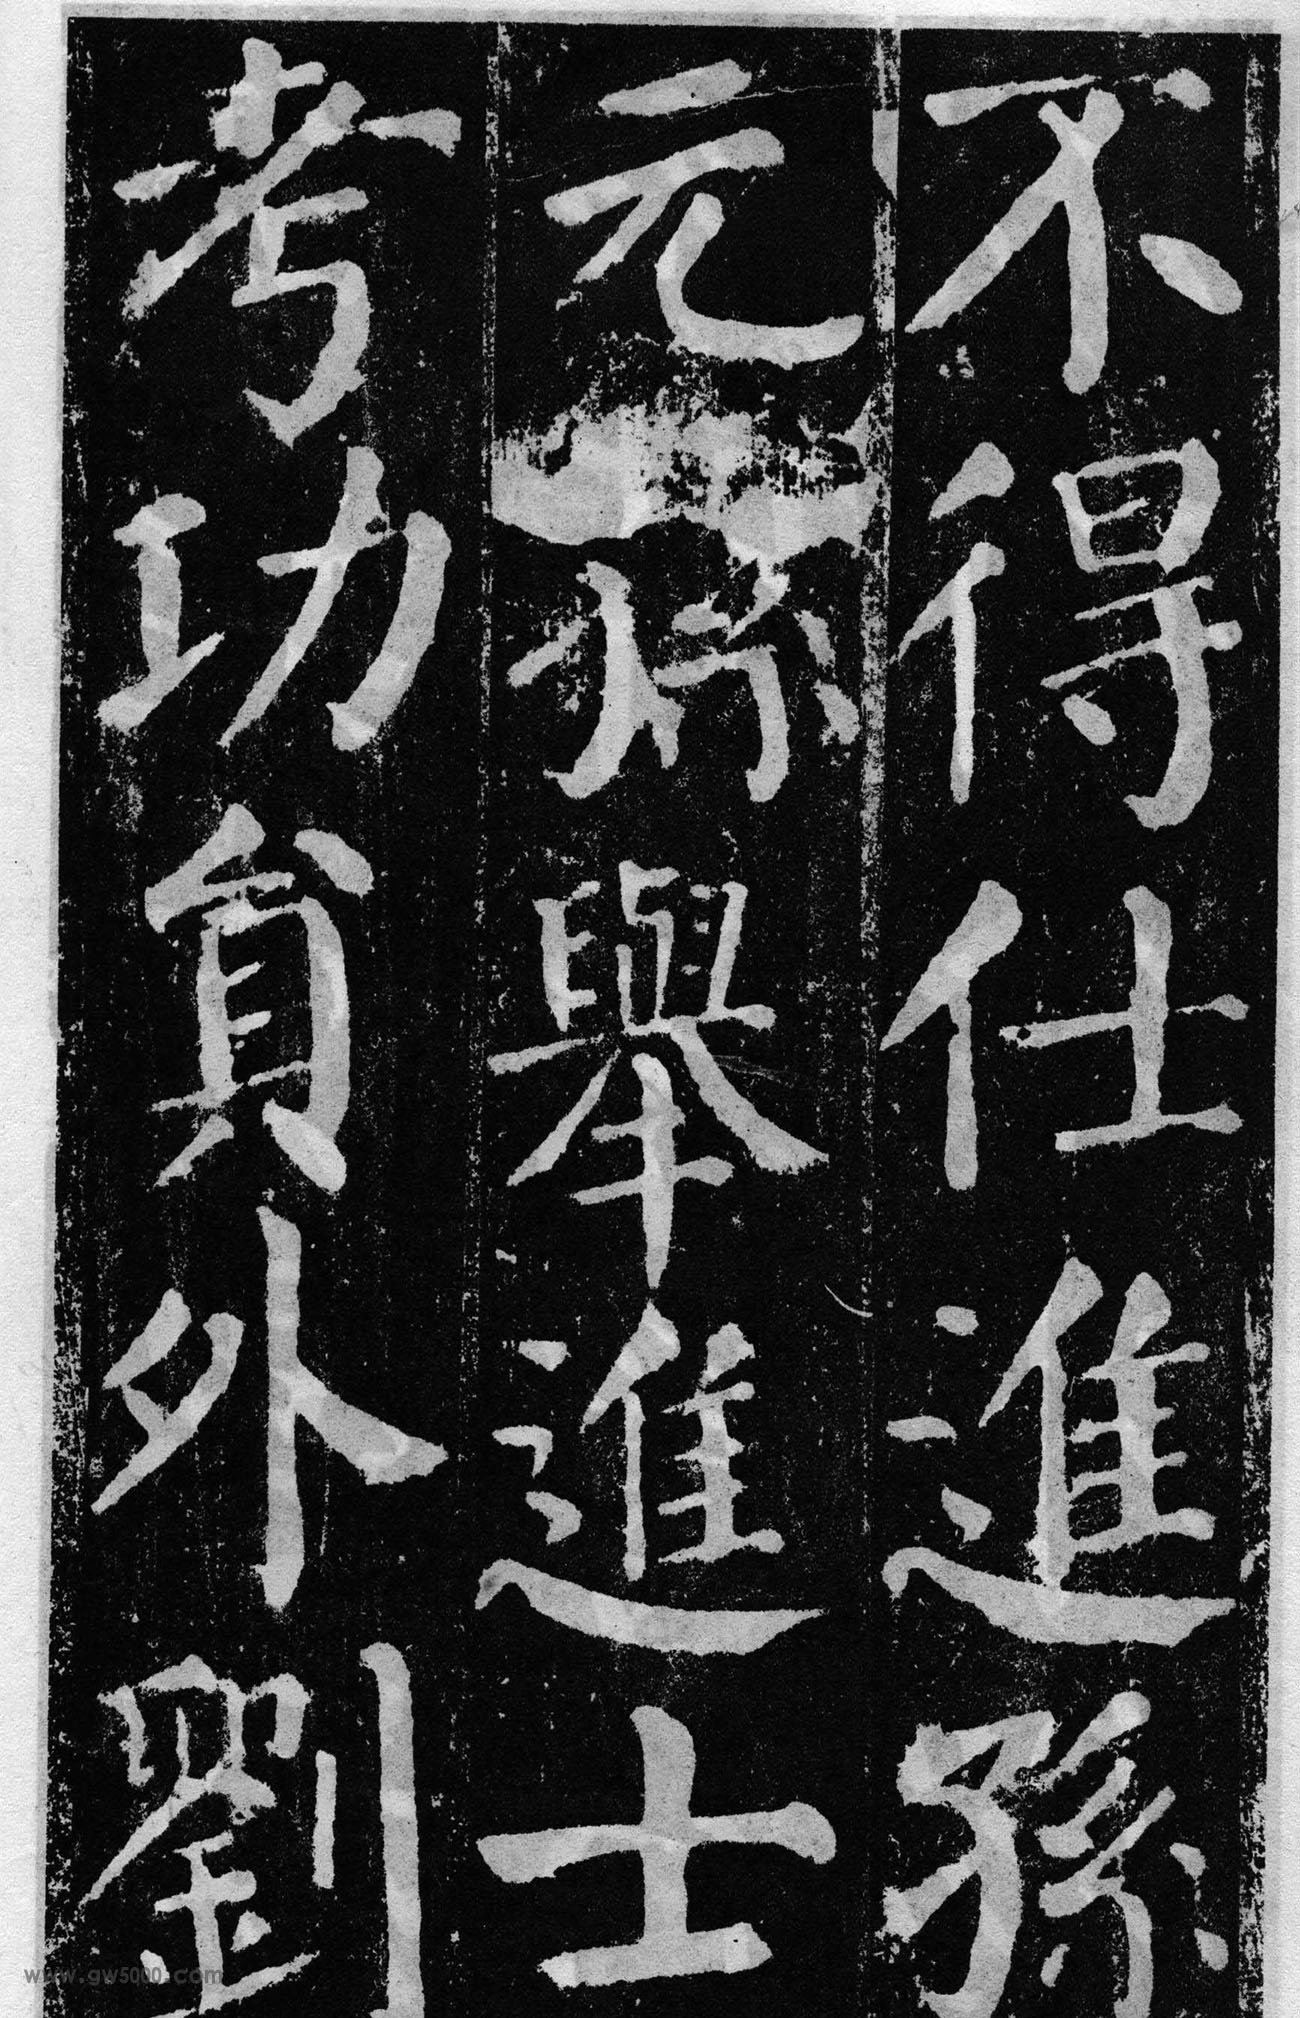 不得仕進孫
元孫舉進士
考功貟外劉
www.gw5000.com